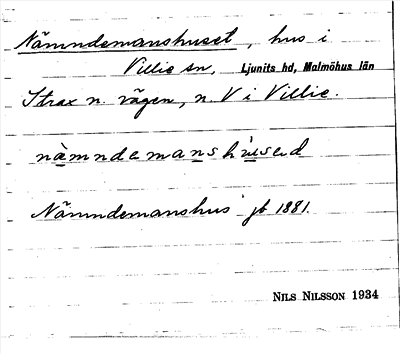 Nämndemanshuset, hus i
Villie sn, Ljunits hd, Malmöhus län
Strax n. vägen, n. V i Villie.
nämndemanshúsed
Nämndemanshus jb 1881.
NILS NILSSON 1934